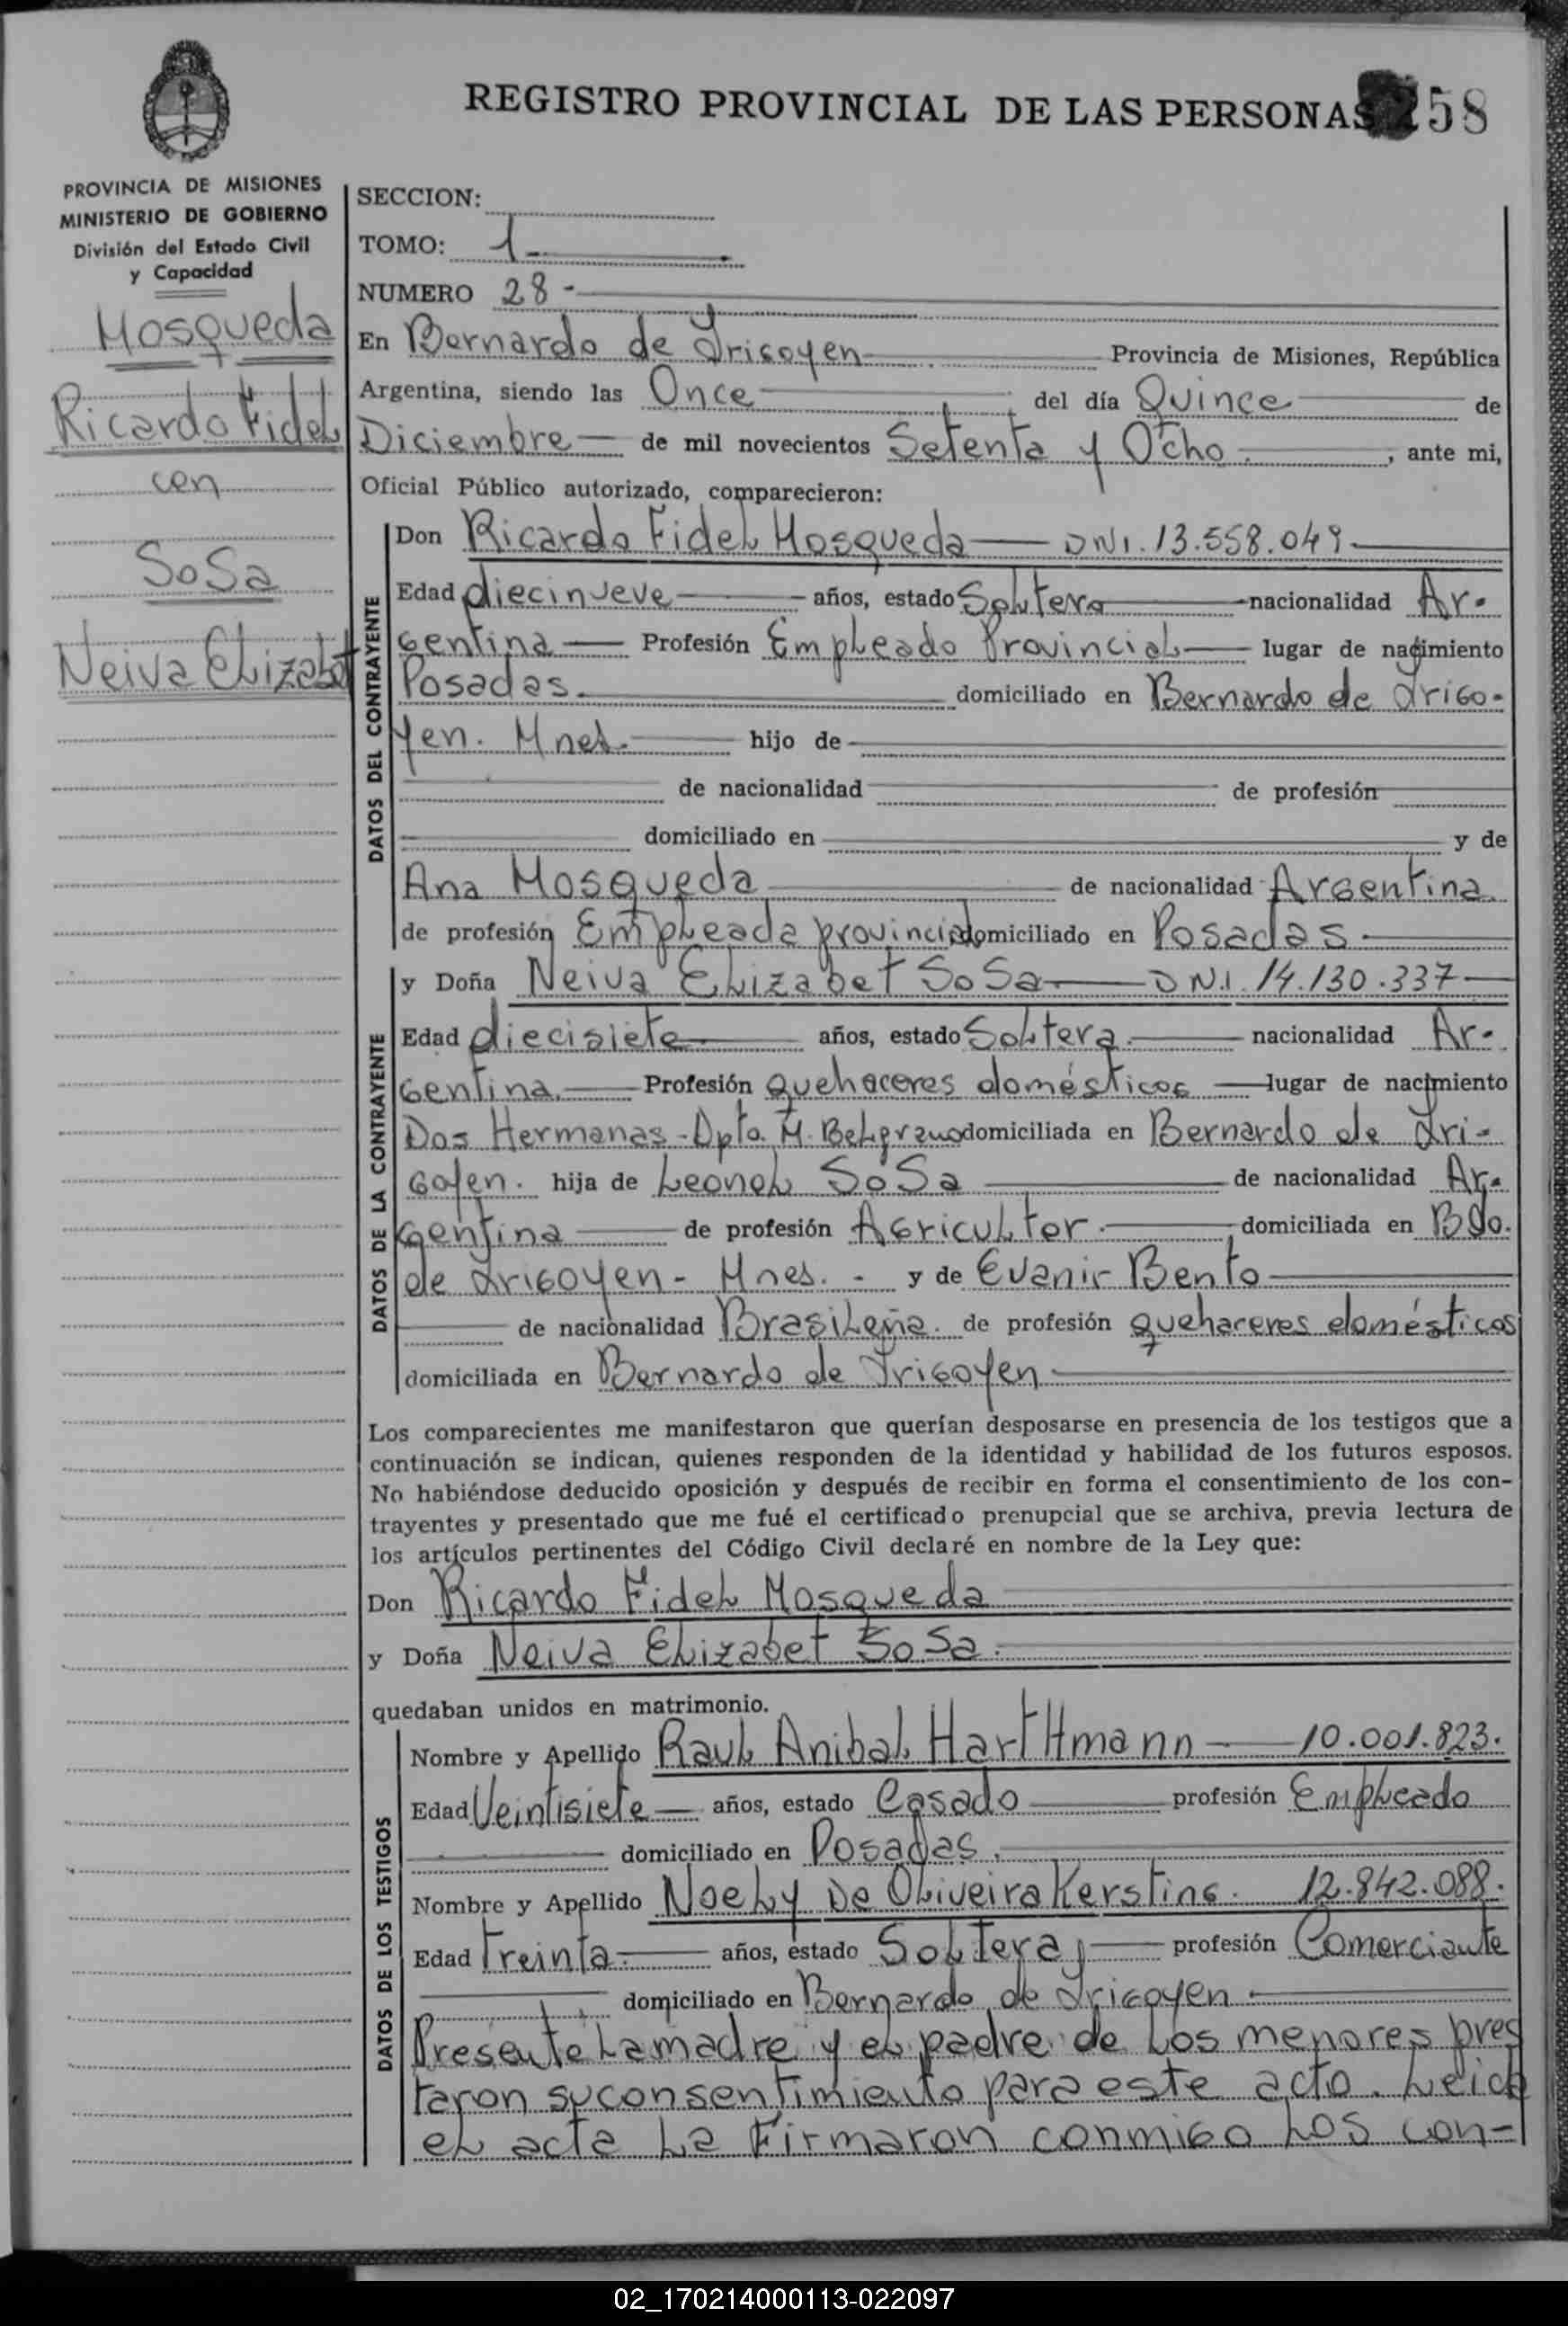 REGISTRO PROVINCIAL DE LAS PERSONAS 58
PROVINCIA DE MISIONES
MINISTERIO DE GOBIERNO
División del Estado Civil
y Capacidad
Mosqueda
Ricardo Fidel
con
Sosa
Neiva Elizabet
SECCION:
TOMO: 1
NUMERO 28 -
En Bernardo de Irigoyen Provincia de Misiones, República
Argentina, siendo las Once del día Quince de
Diciembre de mil novecientos Setenta y Ocho. , ante mi,
Oficial Público autorizado, comparecieron:
DATOS DEL CONTRAYENTE
Don Ricardo Fidel Mosqueda DNI. 13.558.049
Edad diecinueve años, estado Soltero nacionalidad Ar-
gentina Profesión Empleado Provincial lugar de nacimiento
Posadas. domiciliado en Bernardo de Irigo-
yen. Mnes. hijo de
de nacionalidad de profesión
domiciliado en y de
Ana Mosqueda de nacionalidad Argentina.
de profesión Empleada provincial domiciliado en Posadas
DATOS DE LA CONTRAYENTE
y Doña Neiva Elizabet Sosa DNI. 14.130.337
Edad diecisiete años, estado Soltera. nacionalidad Ar-
gentina. Profesión quehaceres domésticos lugar de nacimiento
Dos Hermanas - Dpto. M. Belgrano domiciliada en Bernardo de Iri-
goyen. hija de Leonel Sosa de nacionalidad Ar-
gentina de profesión Agricultor. domiciliada en Bdo.
de Irigoyen - Mnes. - y de Evanir Bento
de nacionalidad Brasileña. de profesión quehaceres domésticos
domiciliada en Bernardo de Irigoyen
Los comparecientes me manifestaron que querían desposarse en presencia de los testigos que a
continuación se indican, quienes responden de la identidad y habilidad de los futuros esposos.
No habiéndose deducido oposición y después de recibir en forma el consentimiento de los con-
trayentes y presentado que me fué el certificado prenupcial que se archiva, previa lectura de
los artículos pertinentes del Código Civil declaré en nombre de la Ley que:
Don Ricardo Fidel Mosqueda
y Doña Neiva Elizabet Sosa.
quedaban unidos en matrimonio.
DATOS DE LOS TESTIGOS
Nombre y Apellido Raul Anibal HartHmann 10.001.823.
Edad Veintisiete años, estado Casado profesión Empleado
domiciliado en Posadas.
Nombre y Apellido Noely De Oliveira Kersting. 12.842.088.
Edad Treinta. años, estado Soltera, profesión Comerciante
domiciliado en Bernardo de Irigoyen.
Presente la madre y el padre de los menores pres
taron su consentimiento para este acto. Leida
el acta la Firmaron conmigo los con-
02_170214000113-022097